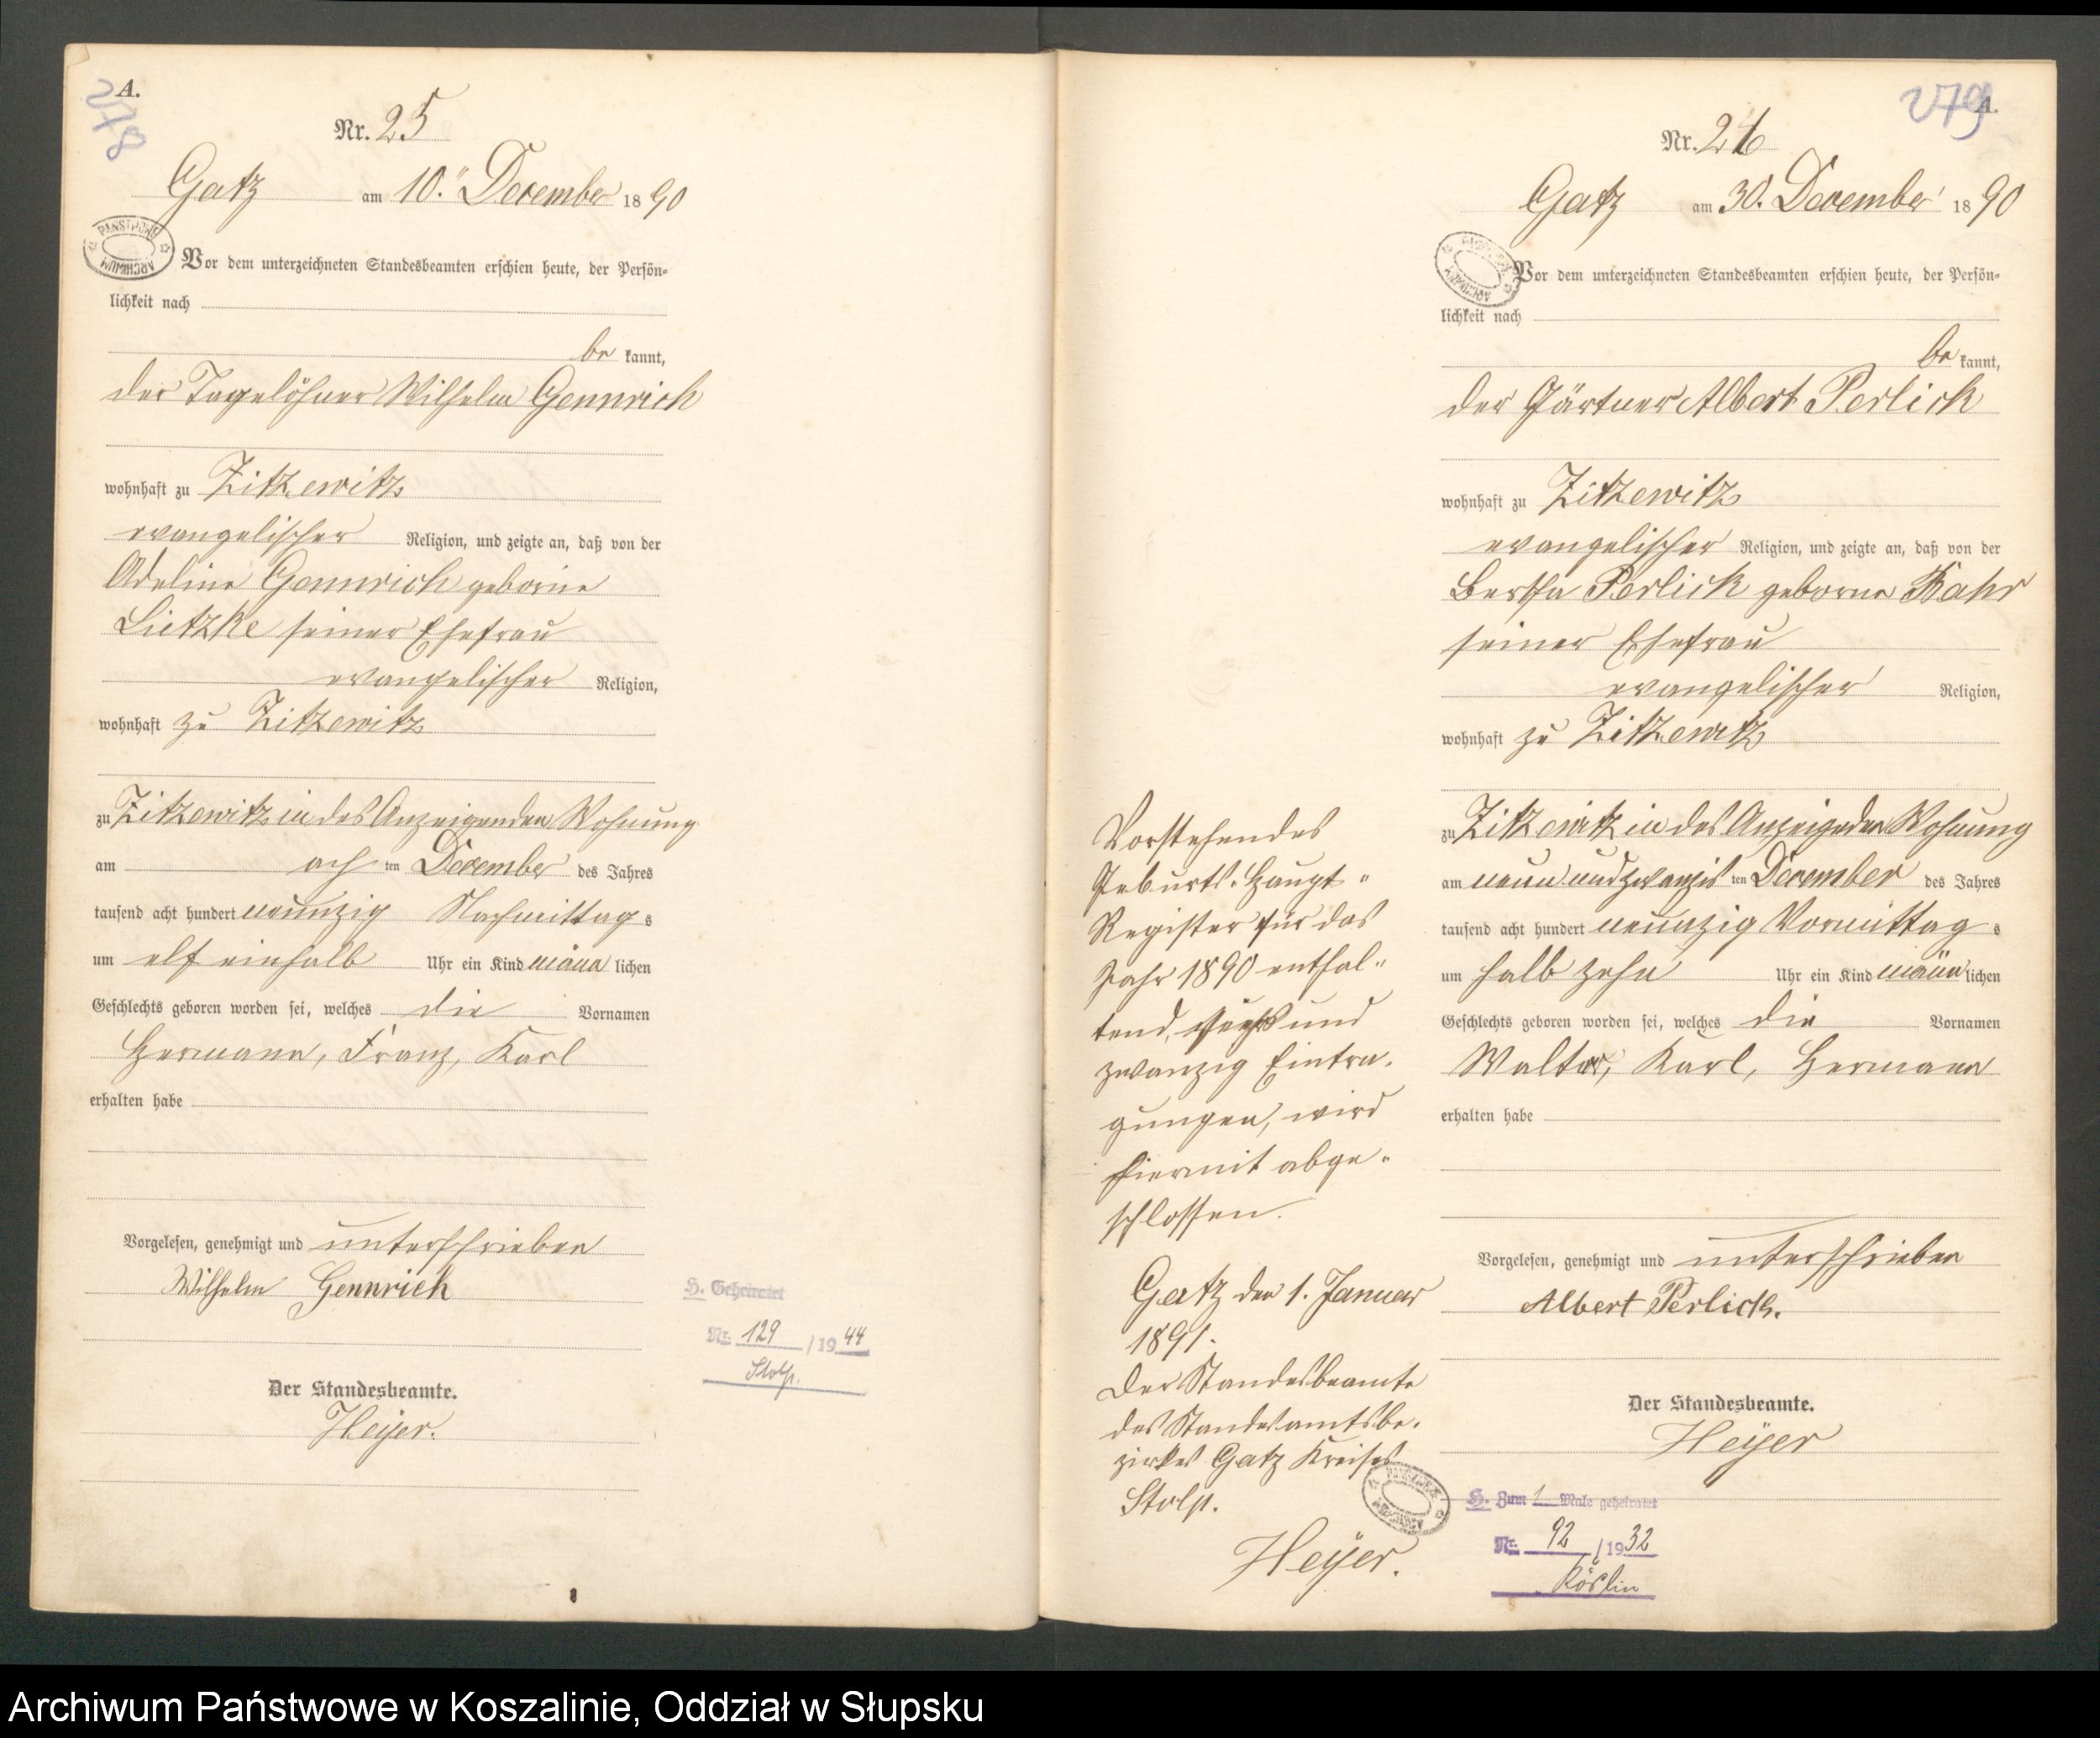 A.
278
Nr. 25
Gatz am 10. December 1890
PAŃSTWOWE ARCHIWUM
Vor dem unterzeichneten Standesbeamten erschien heute, der Persön-
lichkeit nach
be kannt,
der Tagelöhner Wilhelm Gennrich
wohnhaft zu Zitzewitz
evangelischer Religion, und zeigte an, daß von der
Adeline Gennrich geborne
Lietzke seiner Ehefrau
evangelischer Religion,
wohnhaft zu Zitzewitz
zu Zitzewitz in des Anzeigenden Wohnung
am ach ten December des Jahres
tausend acht hundert neunzig Nachmittag s
um elf einhalb Uhr ein Kind männ lichen
Geschlechts geboren worden sei, welches die Vornamen
Hermann, Franz, Karl
erhalten habe
Vorgelesen, genehmigt und unterschrieben
Wilhelm Gennrich
Der Standesbeamte.
Heyer.
H. Geheiratet
Nr. 129 / 1944
Stolp.
Vorstehendes
Geburts-Haupt-
Register für das
Jahr 1890 enthal-
tend, sechs und
zwanzig Eintra-
gungen, wird
hiermit abge-
schlossen.
Gatz den 1. Januar
1891.
Der Standesbeamte
des Standesamtsbe-
zirkes Gatz Kreises
Stolp.
Heyer.
279
A.
Nr. 26
Gatz am 30. December 1890
Vor dem unterzeichneten Standesbeamten erschien heute, der Persön-
lichkeit nach
be kannt,
der Gärtner Albert Perlick
wohnhaft zu Zitzewitz
evangelischer Religion, und zeigte an, daß von der
Bertha Perlick geborne Bahr
seiner Ehefrau
evangelischer Religion,
wohnhaft zu Zitzewitz
zu Zitzewitz in des Anzeigenden Wohnung
am neun und zwanzigs ten December des Jahres
tausend acht hundert neunzig Vormittag s
um halb zehn Uhr ein Kind männ lichen
Geschlechts geboren worden sei, welches die Vornamen
Walter, Karl, Hermann
erhalten habe
Vorgelesen, genehmigt und unterschrieben
Albert Perlick.
Der Standesbeamte.
Heyer
H. Zum 1 Male geheiratet
Nr. 92 / 1932
Köslin
Archiwum Państwowe w Koszalinie, Oddział w Słupsku